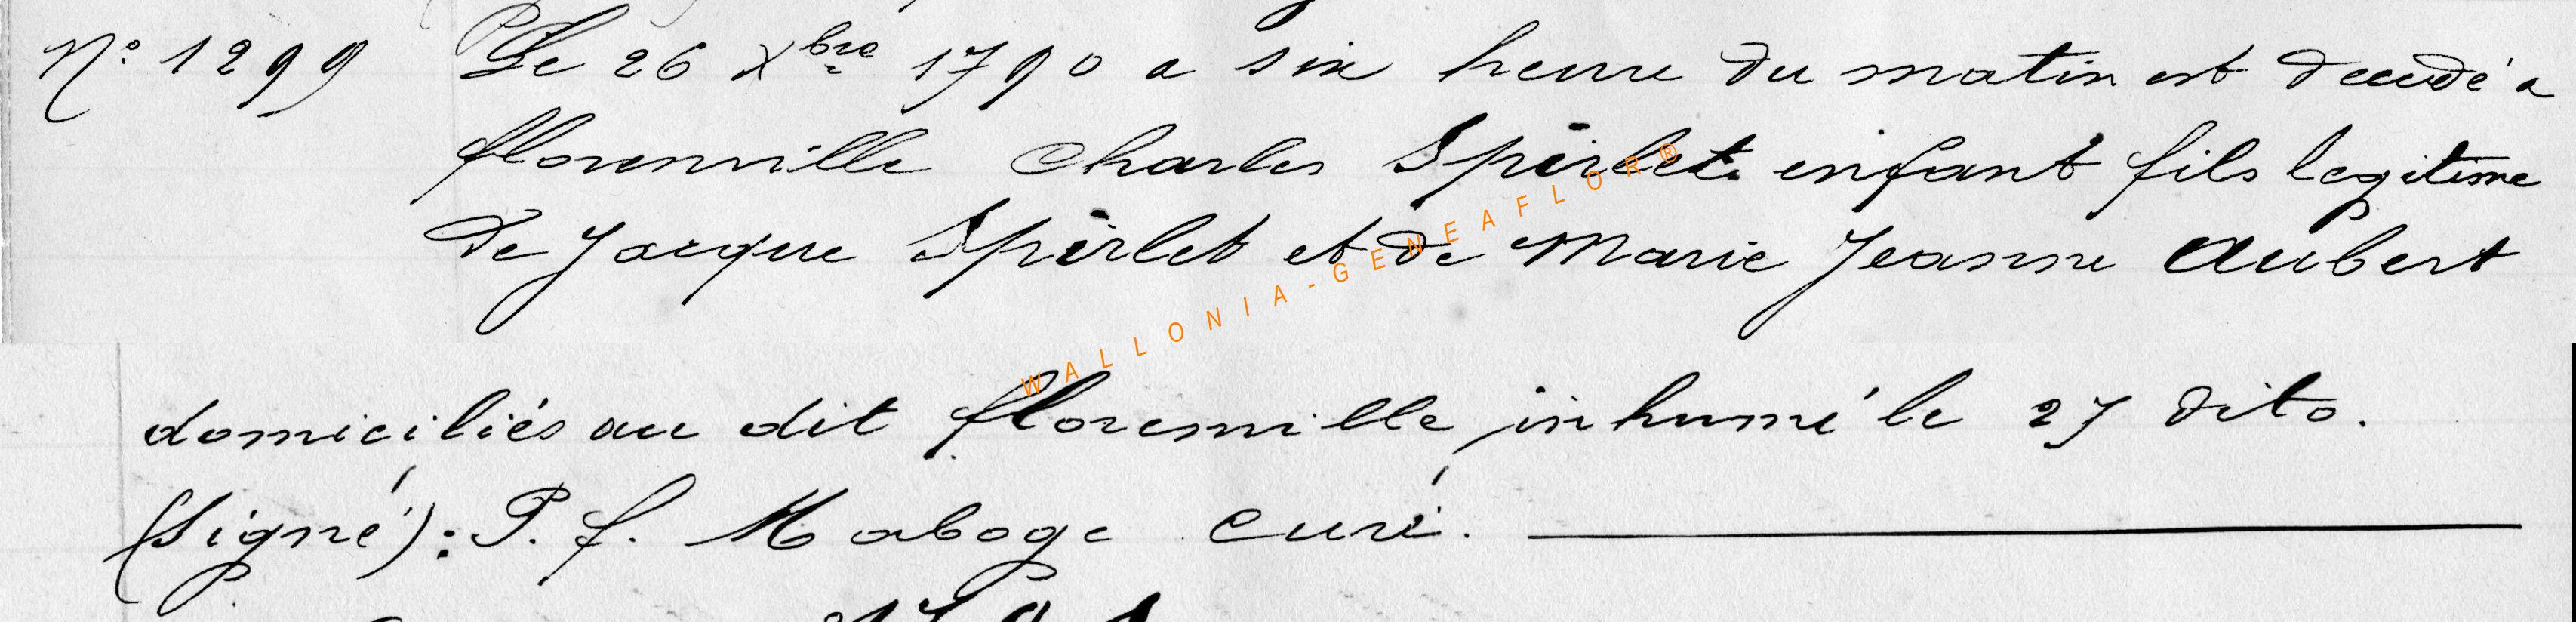 N° 1299 Le 26 Xbre 1790 a six heure du matin est decedé a
florenville Charles Spirlet enfant fils legitime
de Jacque Spirlet et de Marie Jeanne Aubert
WALLONIA-GENEAFLOR®
domiciliés au dit florenville, inhumé le 27 dito.
(Signé): P. f. Maboge curé.